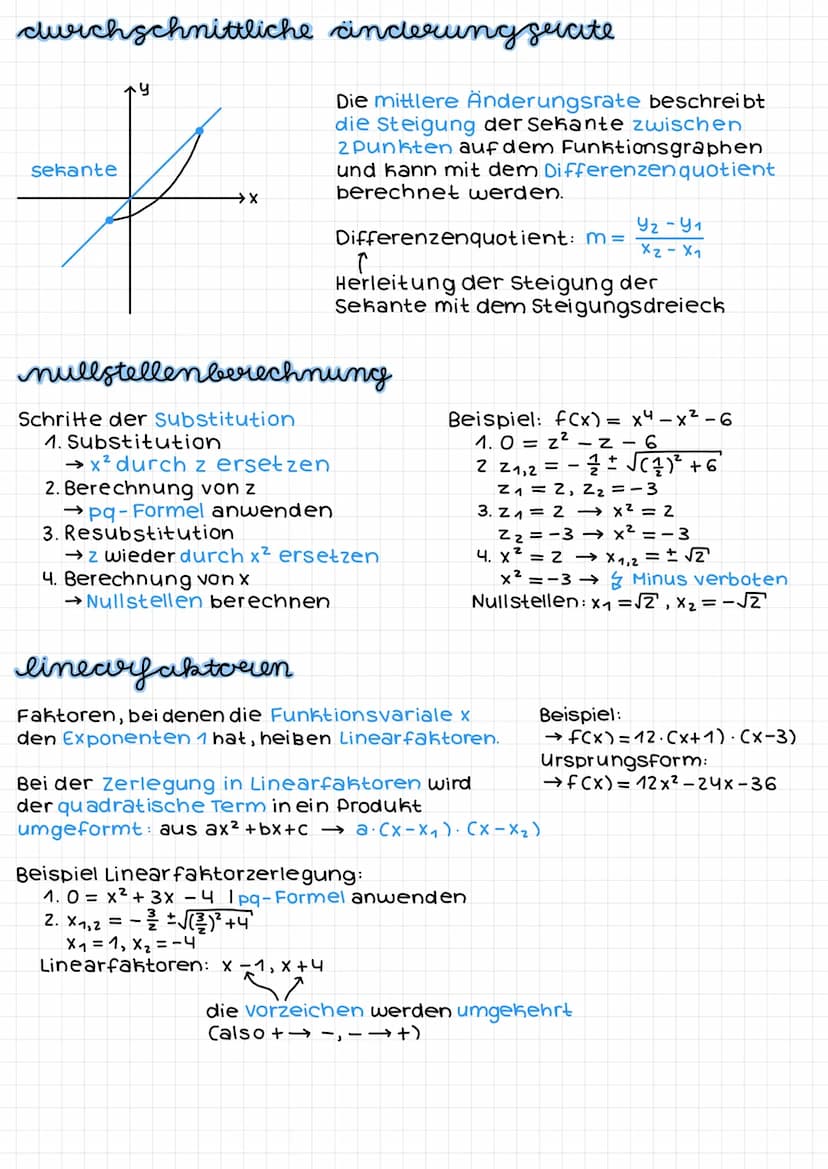 durchschnittliche änderungsrate
y
sekante
x
Die mittlere Änderungsrate beschreibt
die Steigung der Sekante zwischen
2 Punkten auf dem Funktionsgraphen
und kann mit dem Differenzenquotient
berechnet werden.
Differenzenquotient: m = (y₂ - y₁)/(x₂ - x₁)
↑
Herleitung der Steigung der
Sekante mit dem Steigungsdreieck
nullstellenberechnung
Schritte der Substitution
1. Substitution
→ x² durch z ersetzen
2. Berechnung von z
→ pq-Formel anwenden
3. Resubstitution
→ z wieder durch x² ersetzen
4. Berechnung von x
→ Nullstellen berechnen
Beispiel: f(x) = x⁴ - x² - 6
1. 0 = z² - z - 6
2 z₁,₂ = - 1/2 ± √((1/2)² + 6)
z₁ = 2, z₂ = -3
3. z₁ = 2 → x² = 2
z₂ = -3 → x² = -3
4. x² = 2 → x₁,₂ = ± √2
x² = -3 → ↯ Minus verboten
Nullstellen: x₁ = √2, x₂ = -√2
linearfaktoren
Faktoren, bei denen die Funktionsvariale x
den Exponenten 1 hat, heißen Linearfaktoren.
Bei der Zerlegung in Linearfaktoren wird
der quadratische Term in ein Produkt
umgeformt: aus ax² + bx + c → a·(x-x₁)·(x-x₂)
Beispiel:
→ f(x) = 12·(x+1)·(x-3)
Ursprungsform:
→ f(x) = 12x² - 24x - 36
Beispiel Linearfaktorzerlegung:
1. 0 = x² + 3x - 4 | pq-Formel anwenden
2. x₁,₂ = - 3/2 ± √((3/2)² + 4)
x₁ = 1, x₂ = -4
Linearfaktoren: x - 1, x + 4
die Vorzeichen werden umgekehrt
(also + → -, - → +)